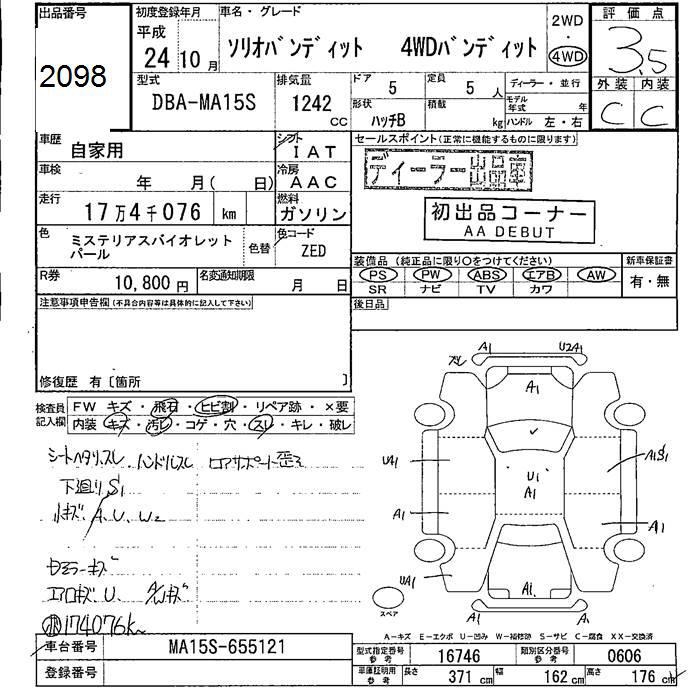 出品番号 初度登録年月 車名・グレード 2WD 評価点
平成
2098 24 10月 ソリオバンディット 4WDバンディット ・ 4WD 3.5
型式 排気量 ドア 定員 ディーラー・並行 外装 内装
DBA-MA15S 1242 cc 5 5人 モデル年式 年
形状 ハッチB 積載 kg ハンドル 左・右 C C
車歴 自家用 シフト IAT セールスポイント(正常に機能するものに限ります)
車検 年 月( 日) 冷房 AAC ディーラー出品車
走行 17万4千076 km 燃料 ガソリン 初出品コーナー
AA DEBUT
色 ミステリアスバイオレットパール 色替 色コード ZED
装備品(純正品に限り○をつけてください) 新車保証書
R券 10,800円 名変通知期限 月 日 PS PW ABS エアB AW 有・無
SR ナビ TV カワ
注意事項申告欄(不具合内容等は具体的に記入して下さい) 後日品
修復歴 有[箇所 ]
検査員記入欄 FW キズ・飛石・ヒビ割・リペア跡・×要
内装 キズ・汚レ・コゲ・穴・スレ・キレ・破レ
シートヘタリスレ ハンドルスレ ロアサポート歪ミ
下廻りS1
小キズ A.U.W2
エアロキズU.
174076K
A1 U2A1
スレ
A1
UA1 U1 A1S1
A1
A1 A1
UA1 A1
A1 A1
スペア
A-キズ E-エクボ U-凹み W-補修跡 S-サビ C-腐食 XX-交換済
車台番号 MA15S-655121 型式指定番号 参考 16746 類別区分番号 参考 0606
登録番号 車庫証明用 参考 長さ 371cm 幅 162cm 高さ 176cm